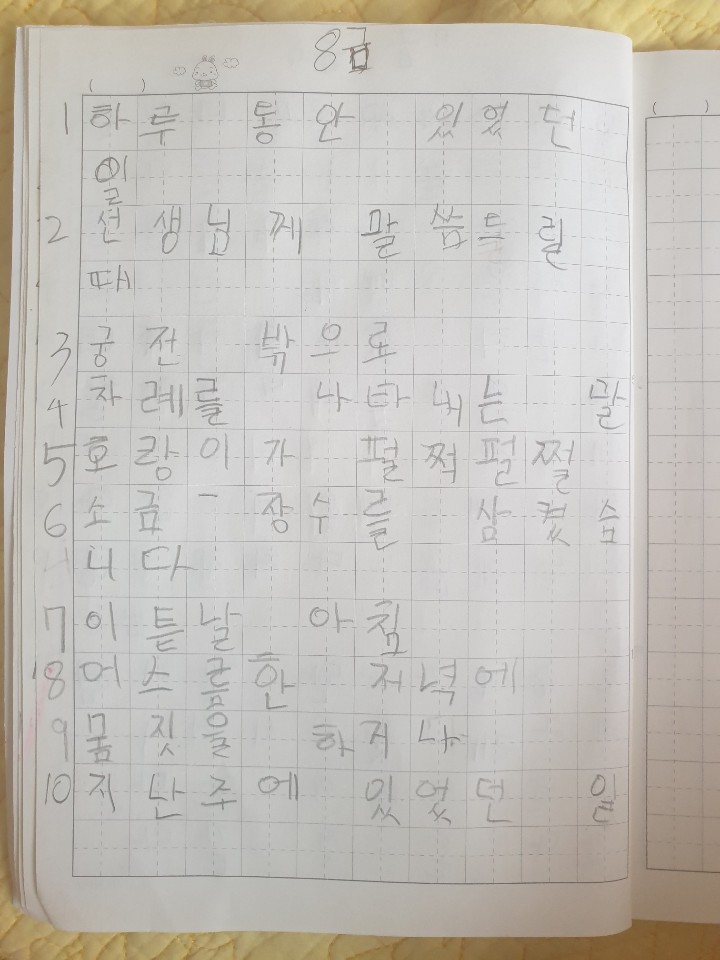 8급
1 하루 동안 있었던
일
2 선생님께 말씀드릴
때
3 궁전 밖으로
4 차례를 나타내는 말
5 호랑이가 펄쩍펄쩔
6 소금 장수를 삼켰습
니다
7 이튿날 아침
8 어스름한 저녁에
9 몸짓을 하거나
10 지난주에 있었던 일